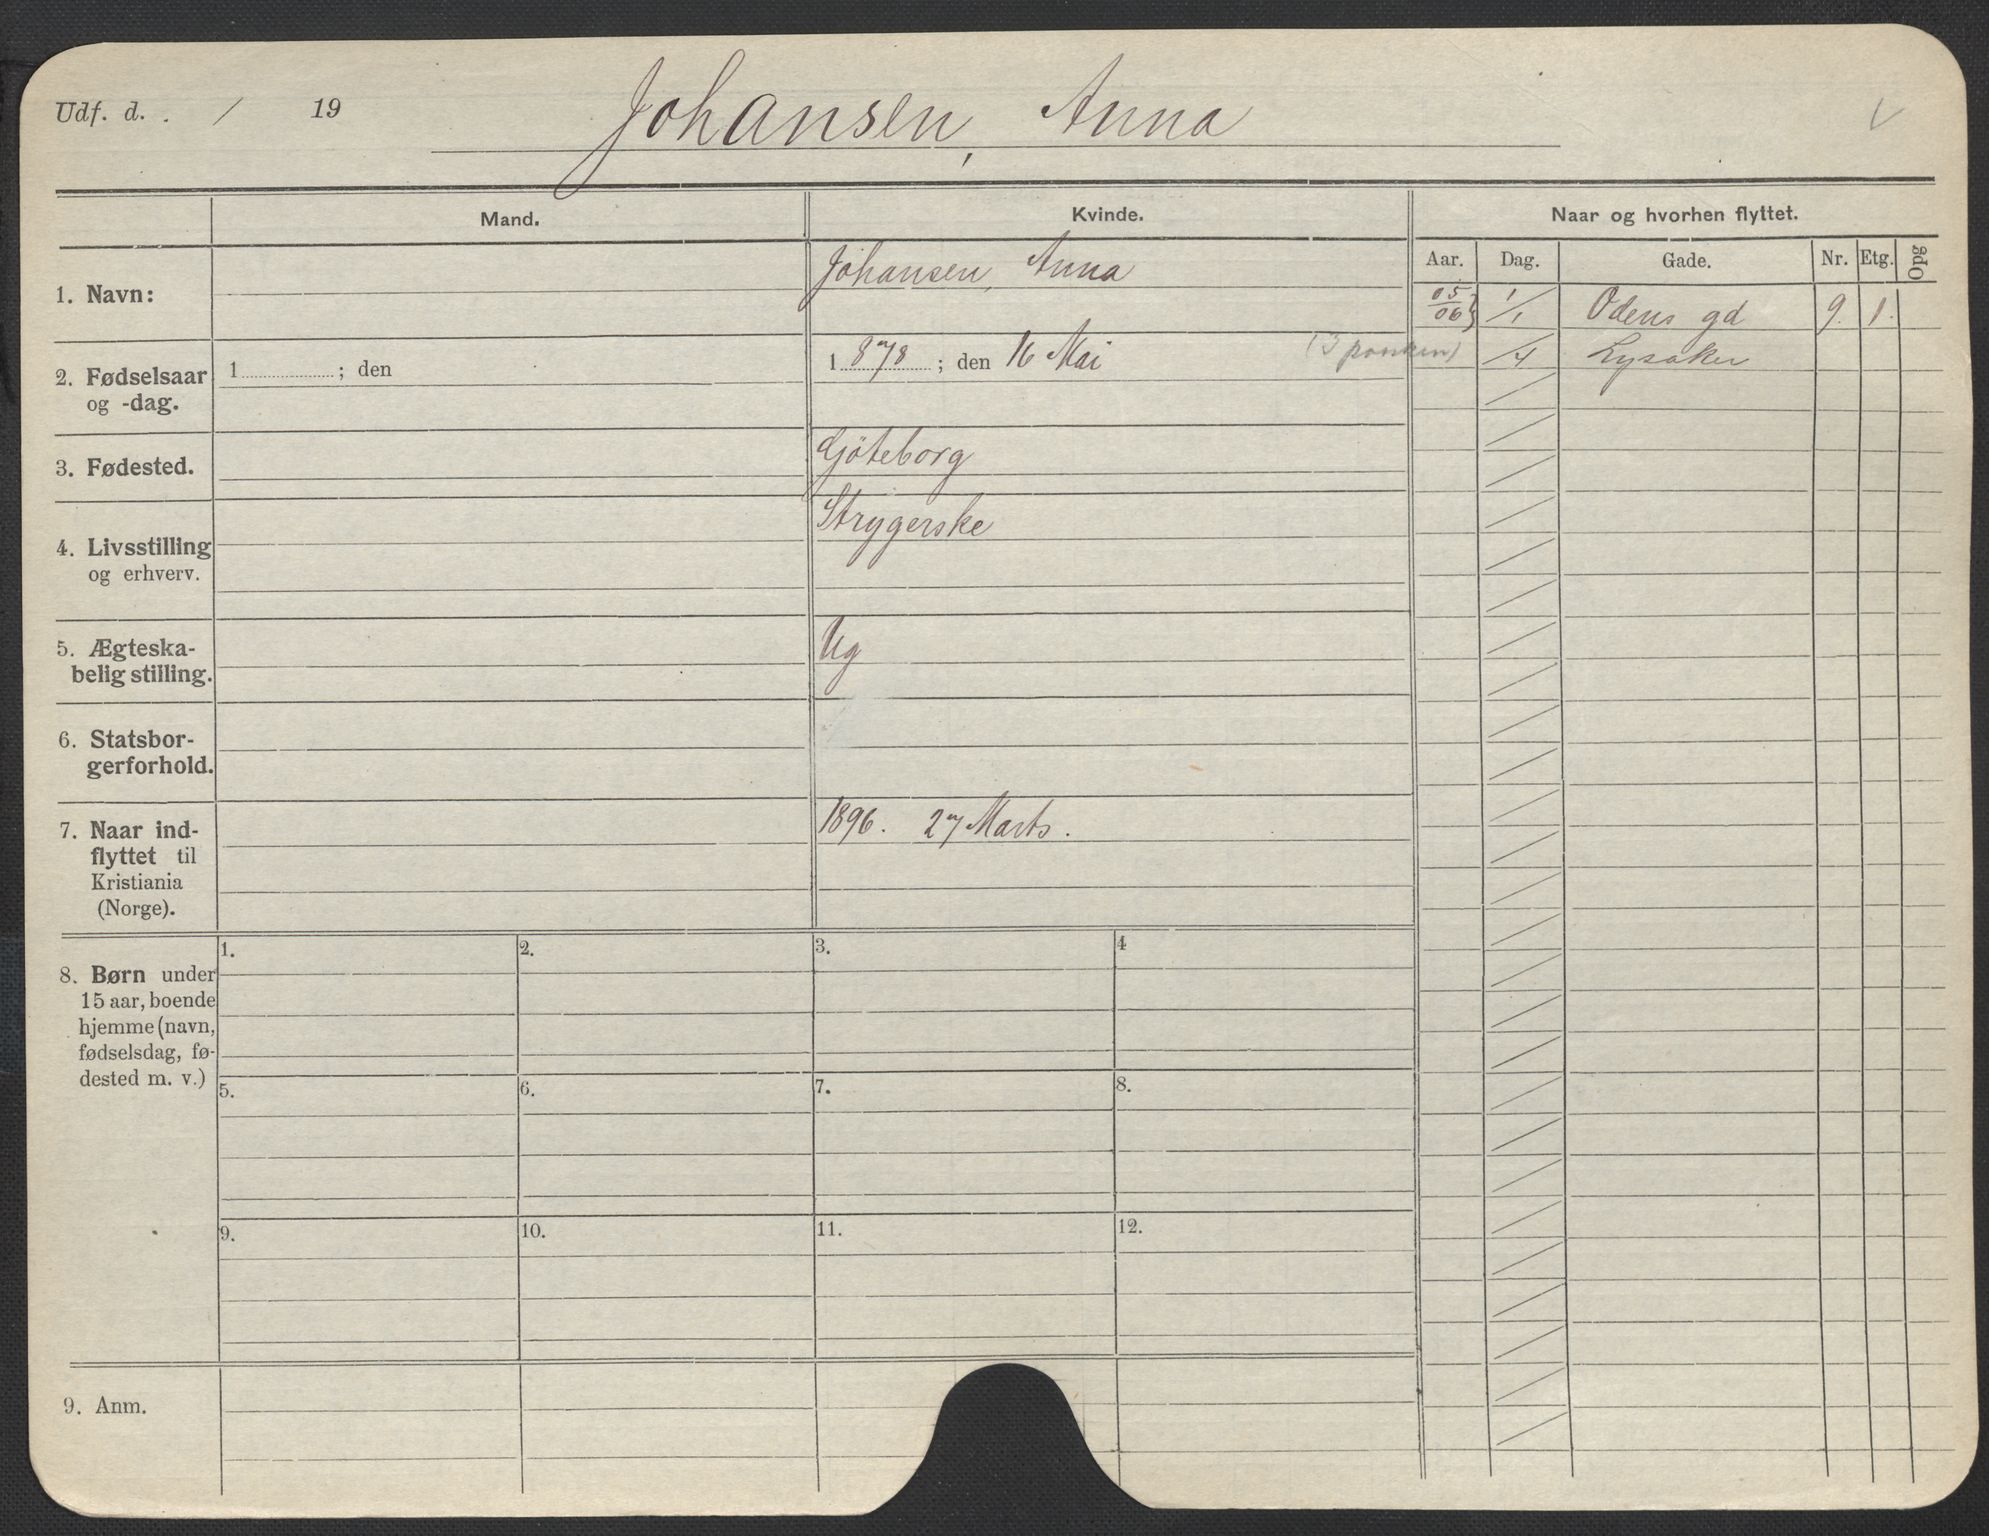 Udf. d. . / 19 Johansen, Anna
Mand. Kvinde. Naar og hvorhen flyttet.
Aar. Dag. Gade. Nr. Etg. Opg
1. Navn: Johansen, Anna
05/06} 1/1 Odens gd 9. 1.
2. Fødselsaar
og -dag.
1 ; den
1 878 ; den 16 Mai
/4 Lysaker
3. Fødested. Göteborg
4. Livsstilling
og erhverv.
Strygerske
5. Ægteska-
belig stilling.
Ug
6. Statsbor-
gerforhold.
7. Naar ind-
flyttet til
Kristiania
(Norge).
1896. 27 Marts.
8. Børn under
15 aar, boende
hjemme (navn,
fødselsdag, fø-
dested m. v.)
1. 2. 3. 4
5. 6. 7. 8.
9. 10. 11. 12.
9. Anm.